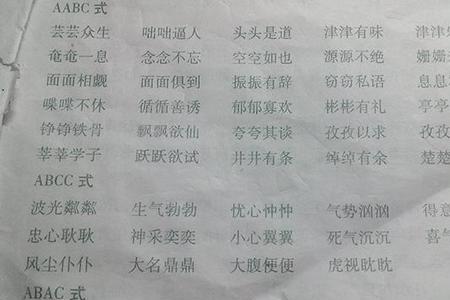 AABC 式
芸芸众生 咄咄逼人 头头是道 津津有味 津津
奄奄一息 念念不忘 空空如也 源源不绝 姗姗
面面相觑 面面俱到 振振有辞 窃窃私语 息息
喋喋不休 循循善诱 郁郁寡欢 彬彬有礼 亭亭
铮铮铁骨 飘飘欲仙 夸夸其谈 孜孜以求 孜
莘莘学子 跃跃欲试 井井有条 绰绰有余 楚楚
ABCC 式
波光粼粼 生气勃勃 忧心忡忡 气势汹汹 得意
忠心耿耿 神采奕奕 小心翼翼 死气沉沉 喜气
风尘仆仆 大名鼎鼎 大腹便便 虎视眈眈
ABAC 式